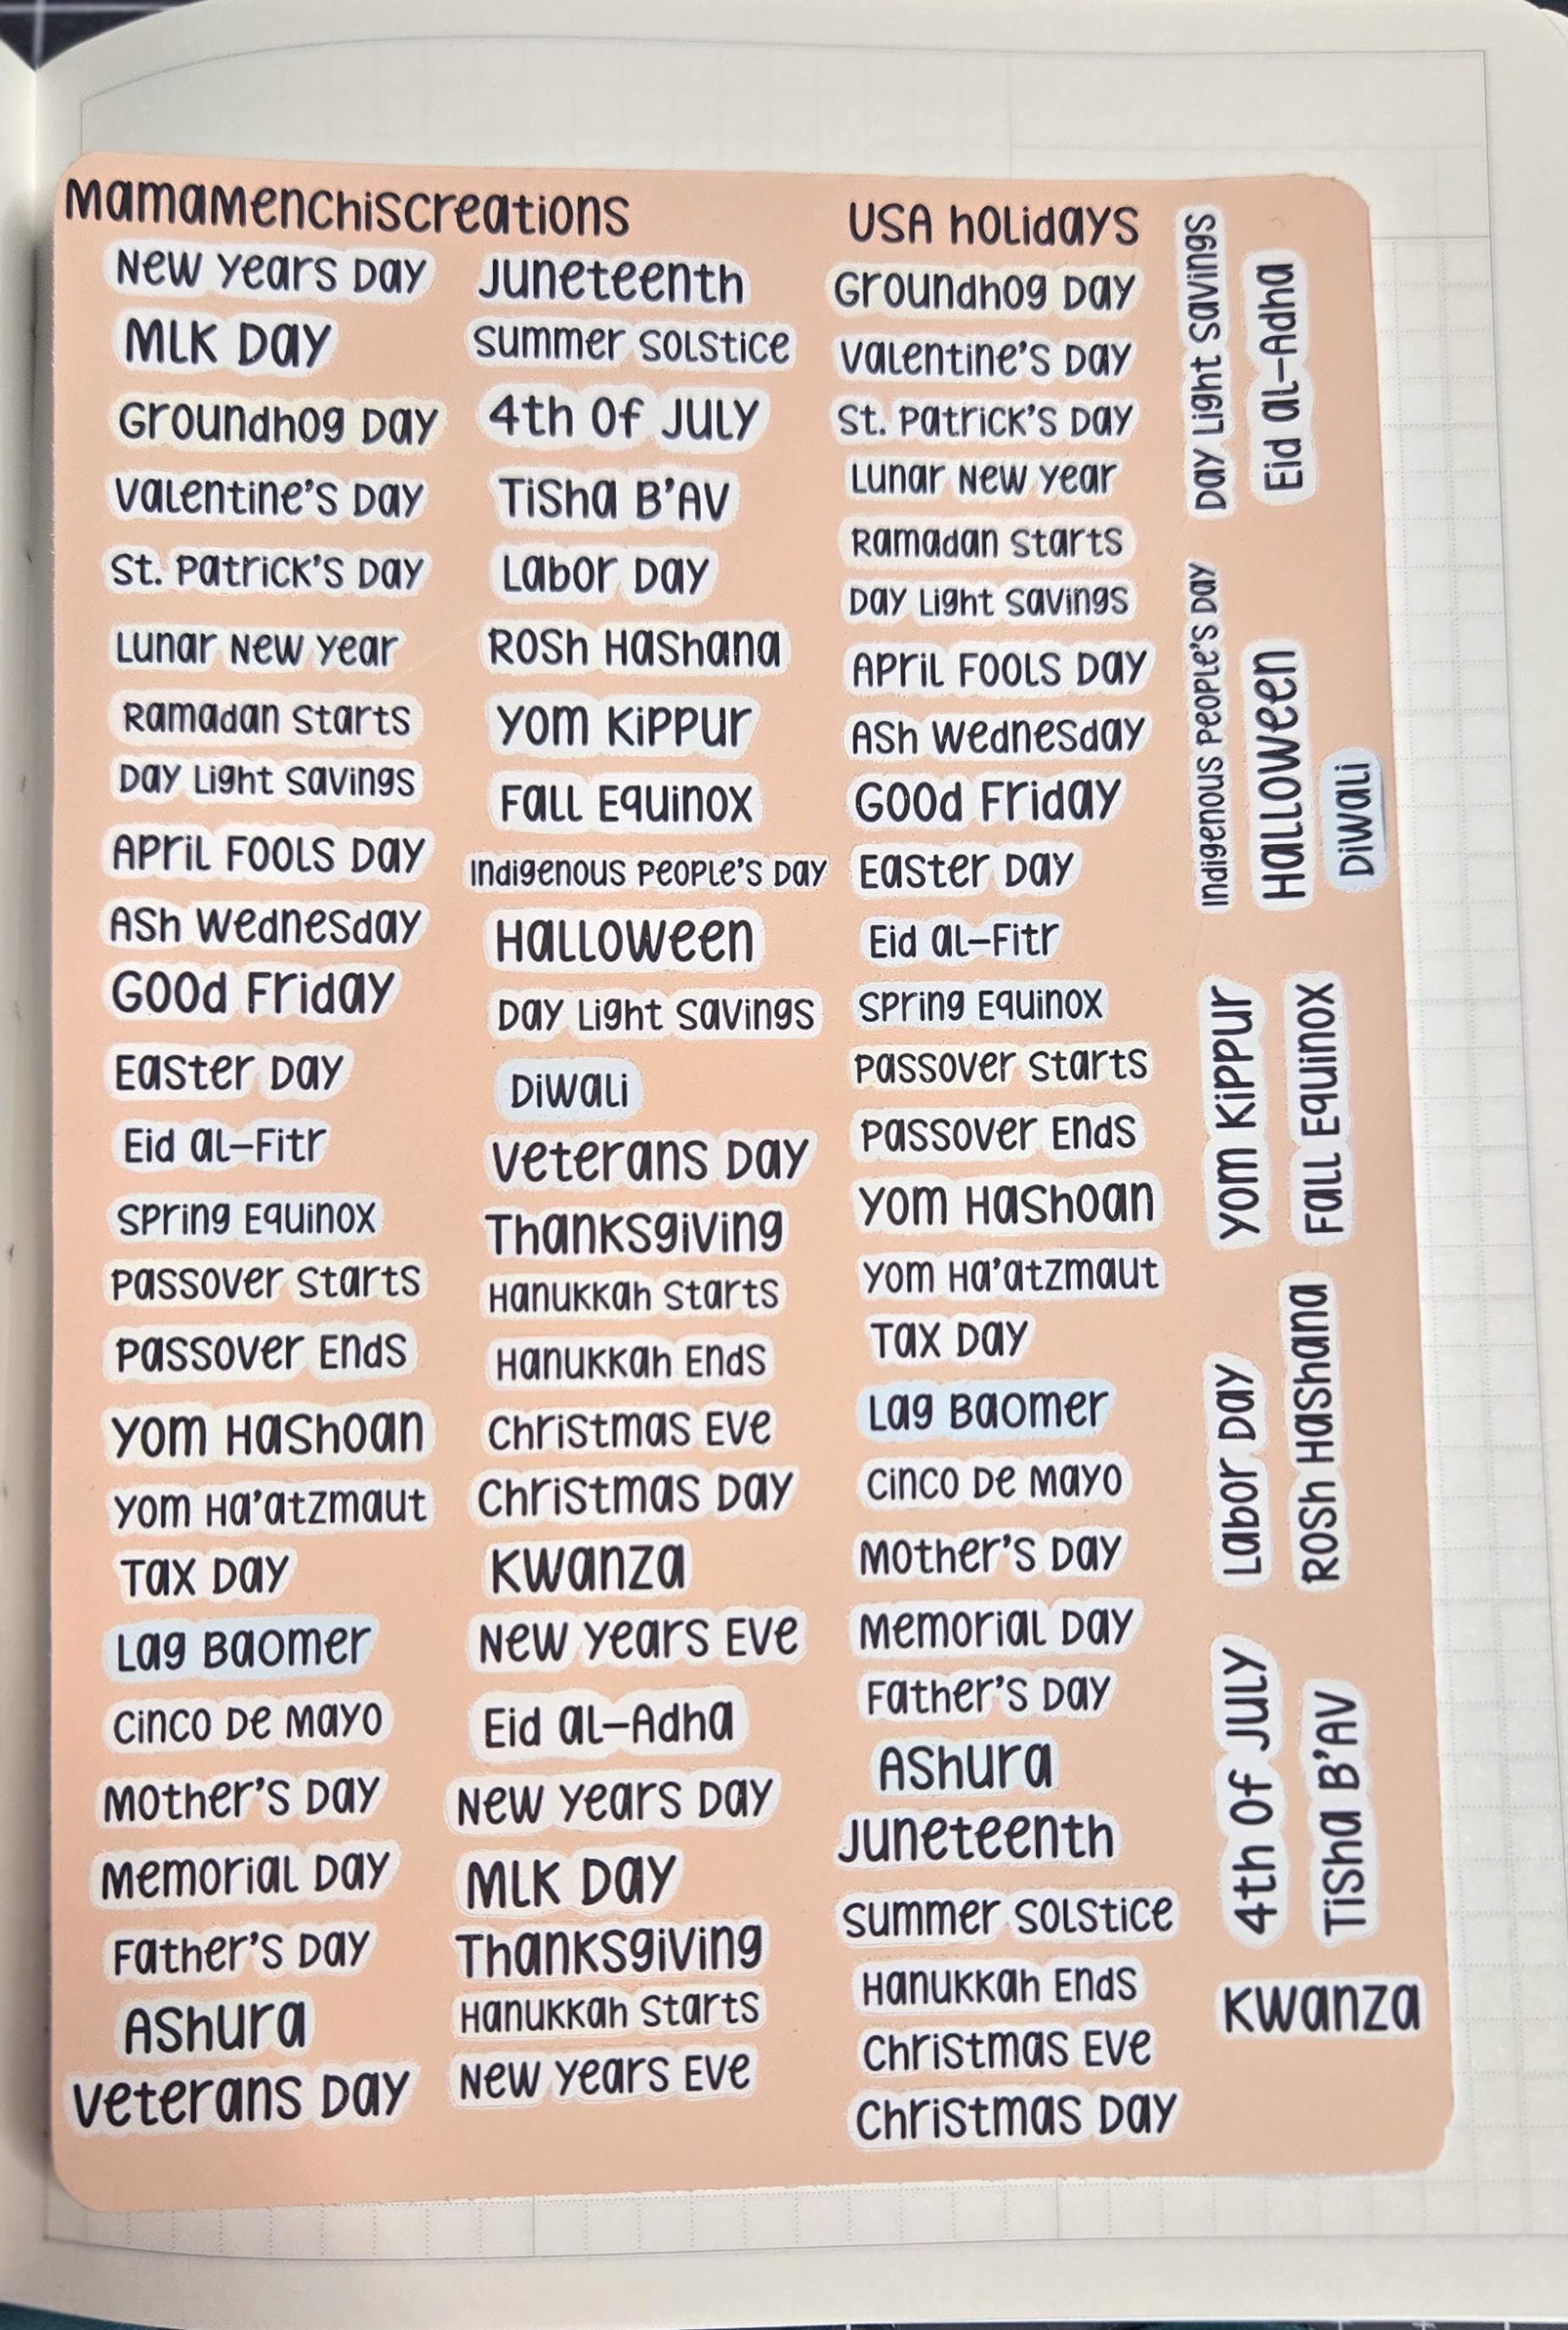 Mamamenchiscreations
New Years Day
MLK Day
Groundhog Day
Valentine's Day
St. Patrick's Day
Lunar New Year
Ramadan Starts
Day Light Savings
April Fools Day
Ash Wednesday
Good Friday
Easter Day
Eid al-Fitr
Spring Equinox
Passover Starts
Passover Ends
Yom Hashoan
Yom Ha'atzmaut
Tax Day
Lag Baomer
Cinco De Mayo
Mother's Day
Memorial Day
Father's Day
Ashura
Veterans Day
Juneteenth
Summer Solstice
4th Of July
Tisha B'Av
Labor Day
Rosh Hashana
Yom Kippur
Fall Equinox
Indigenous People's Day
Halloween
Day Light Savings
Diwali
Veterans Day
Thanksgiving
Hanukkah Starts
Hanukkah Ends
Christmas Eve
Christmas Day
Kwanza
New Years Eve
Eid al-Adha
New Years Day
MLK Day
Thanksgiving
Hanukkah Starts
New Years Eve
USA Holidays
Groundhog Day
Valentine's Day
St. Patrick's Day
Lunar New Year
Ramadan Starts
Day Light Savings
April Fools Day
Ash Wednesday
Good Friday
Easter Day
Eid al-Fitr
Spring Equinox
Passover Starts
Passover Ends
Yom Hashoan
Yom Ha'atzmaut
Tax Day
Lag Baomer
Cinco De Mayo
Mother's Day
Memorial Day
Father's Day
Ashura
Juneteenth
Summer Solstice
Hanukkah Ends
Christmas Eve
Christmas Day
Day Light Savings
Eid al-Adha
Indigenous People's Day
Halloween
Diwali
Yom Kippur
Fall Equinox
Labor Day
Rosh Hashana
4th Of July
Tisha B'Av
Kwanza